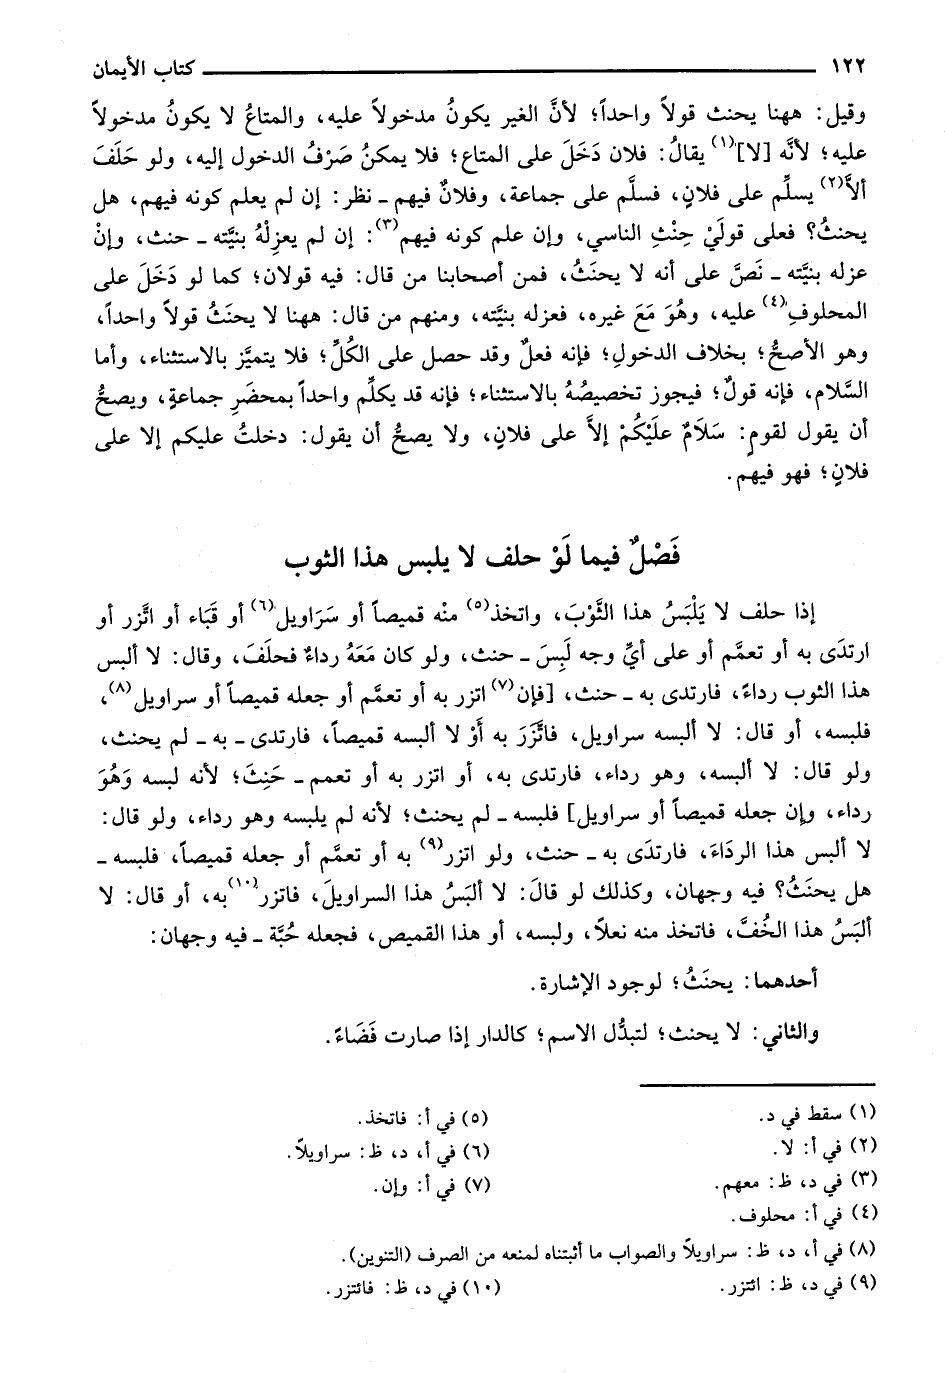 ١٢٢ كتاب الأيمان
وقيل: ههنا يحنث قولاً واحداً؛ لأنَّ الغير يكونُ مدخولاً عليه، والمتاعُ لا يكونُ مدخولاً
عليه؛ لأنَّه [لا]⁽١⁾ يقالُ: فلان دَخَلَ على المتاع؛ فلا يمكنُ صَرْفُ الدخول إليه، ولو حَلَفَ
ألاَّ⁽٢⁾ يسلِّم على فلانٍ، فسلَّم على جماعة، وفلانٌ فيهم ـ نظر: إن لم يعلم كونه فيهم، هل
يحنثُ؟ فعلى قوليْ حِنْثِ الناسي، وإن علم كونه فيهم⁽٣⁾: إن لم يعزِلْهُ بنيَّته ـ حنث، وإنْ
عزله بنيَّته ـ نَصَّ على أنه لا يحنَثُ، فمن أصحابنا من قال: فيه قولان؛ كما لو دَخَلَ على
المحلوفِ⁽٤⁾ عليه، وهُوَ مَعَ غيره، فعزله بنيَّته، ومنهم من قال: ههنا لا يحنَثُ قولاً واحداً،
وهو الأصحُّ؛ بخلاف الدخولِ؛ فإنه فعلٌ وقد حصل على الكُلِّ؛ فلا يتميَّز بالاستثناء، وأما
السَّلام، فإنه قولٌ؛ فيجوز تخصيصُهُ بالاستثناء؛ فإنه قد يكلِّم واحداً بمحضَرِ جماعةٍ، ويصحُّ
أن يقول لقومٍ: سَلاَمٌ علَيْكُمْ إلاَّ على فلانٍ، ولا يصحُّ أن يقول: دخلتُ عليكم إلا على
فلانٍ؛ فهو فيهم.
فَصْلٌ فيما لَوْ حلف لا يلبس هذا الثوب
إذا حلف لا يَلْبَسُ هذا الثَّوْبَ، واتخذ⁽٥⁾ منْه قميصاً أو سَرَاويل⁽٦⁾ أو قَبَاء أو اتَّزر أو
ارتدَى به أو تعمَّم أو على أيِّ وجه لَبِسَ ـ حنث، ولو كان مَعَهُ رداءٌ فحلَفَ، وقال: لا ألبس
هذا الثوب رداءً، فارتدى به ـ حنث، [فإن⁽٧⁾ اتزر به أو تعمَّم أو جعله قميصاً أو سراويل⁽٨⁾،
فلبسه، أو قال: لا ألبسه سراويل، فاتَّزَرَ به أَوْ لا ألبسه قميصاً، فارتدى ـ به ـ لم يحنث،
ولو قال: لا ألبسه، وهو رداء، فارتدى به، أو اتزر به أو تعمم ـ حَنِثَ؛ لأنه لبسه وَهُوَ
رداء، وإن جعله قميصاً أو سراويل] فلبسه ـ لم يحنث؛ لأنه لم يلبسه وهو رداء، ولو قال:
لا ألبس هذا الردَاءَ، فارتدَى به ـ حنث، ولو اتزر⁽٩⁾ به أو تعمَّم أو جعله قميصاً، فلبسه ـ
هل يحنَثُ؟ فيه وجهان، وكذلك لو قالَ: لا ألبَسُ هذا السراويلَ، فاتزر⁽١٠⁾به، أو قال: لا
ألبَسُ هذا الخُفَّ، فاتخذ منه نعلاً، ولبسه، أو هذا القميص، فجعله جُبَّة ـ فيه وجهان:
أحدهما: يحنَثُ؛ لوجود الإشارة.
والثاني: لا يحنث؛ لتبدُّل الاسم؛ كالدار إذا صارت فَضَاءً.
(١) سقط في د.
(٢) في أ: لا.
(٣) في د، ظ: معهم.
(٤) في أ: محلوف.
(٥) في أ: فاتخذ.
(٦) في أ، د، ظ: سراويلاً.
(٧) في أ: وإن.
(٨) في أ، د، ظ: سراويلاً والصواب ما أثبتناه لمنعه من الصرف (التنوين).
(٩) في د، ظ: ائتزر.
(١٠) في د، ظ: فائتزر.